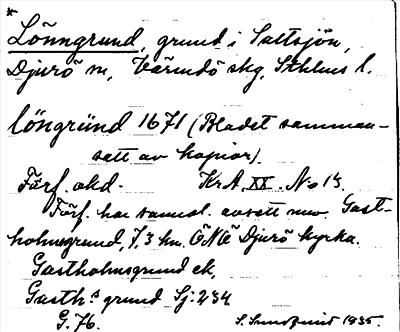 *
Lönngrund, grund i Saltsjön,
Djurö sn, Värmdö skg, Sthlms l.
löngründ 1671 (Bladet samman-
satt av kopior).
Förf. okd. KrA. XX. No 13.
Förf. har sannol. avsett nuv. Gast-
holmsgrund, 7,3 km. ÖNÖ Djurö kyrka.
Gastholmsgrund ek,
Gasth.s grund Sj: 234
G. 76. 1935.